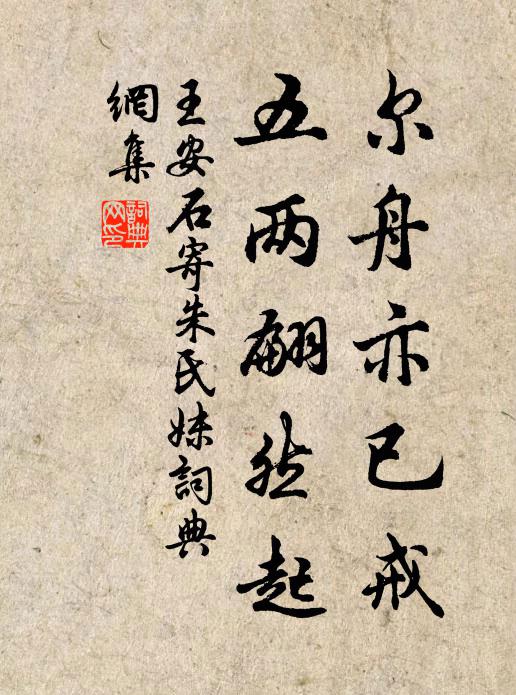 尔舟亦已戒
五两翩然起
王安石寄朱氏妹詞典
網集
詞典网印